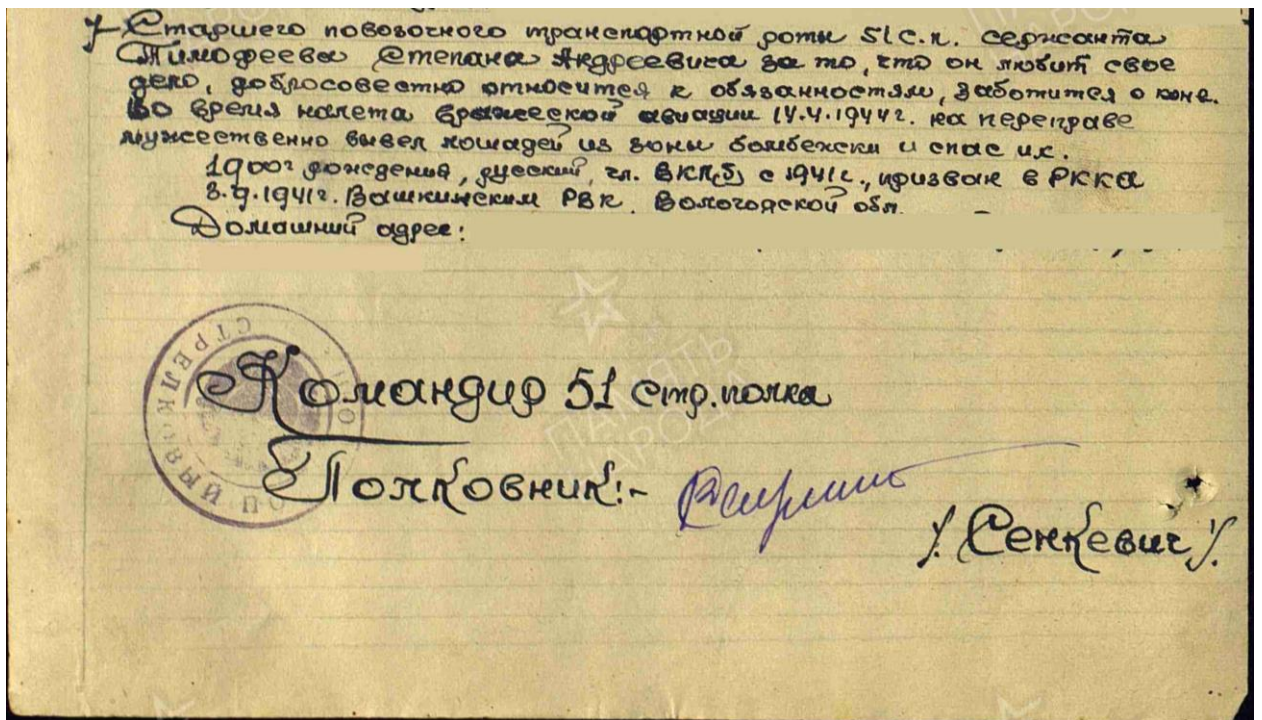 7 Старшего повозочного транспортной роты 51 с.п. сержанта
Тимофеева Степана Андреевича за то, что он любит свое
дело, добросовестно относится к обязанностям, заботится о коне.
Во время налета вражеской авиации 14.4.1944г. на переправе
мужественно вывел лошадей из зоны бомбежки и спас их.
1900г рождения, русский, чл. ВКП(б) с 1941г., призван в РККА
3.9.1941г. Вашкинским РВК Вологодской обл.
Домашний адрес:
СТРЕЛКОВЫЙ ПО
Командир 51 стр. полка
Полковник:-
/. Сенкевич /.
ПАМЯТЬ
НАРОДА